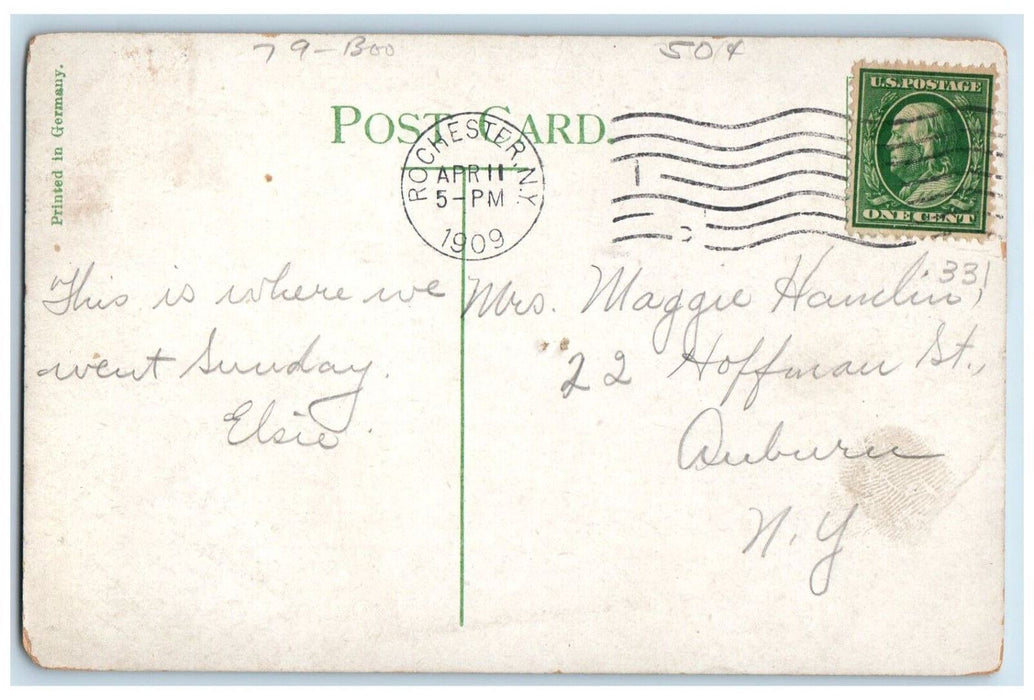 79-Boo
50¢
Printed in Germany.
POST CARD.
ROCHESTER, N.Y.
APR 11
5-PM
1909
U.S. POSTAGE
ONE CENT
This is where we
went Sunday.
Elsie.
331
Mrs. Maggie Hamlin,
22 Hoffman St.,
Auburn
N.Y